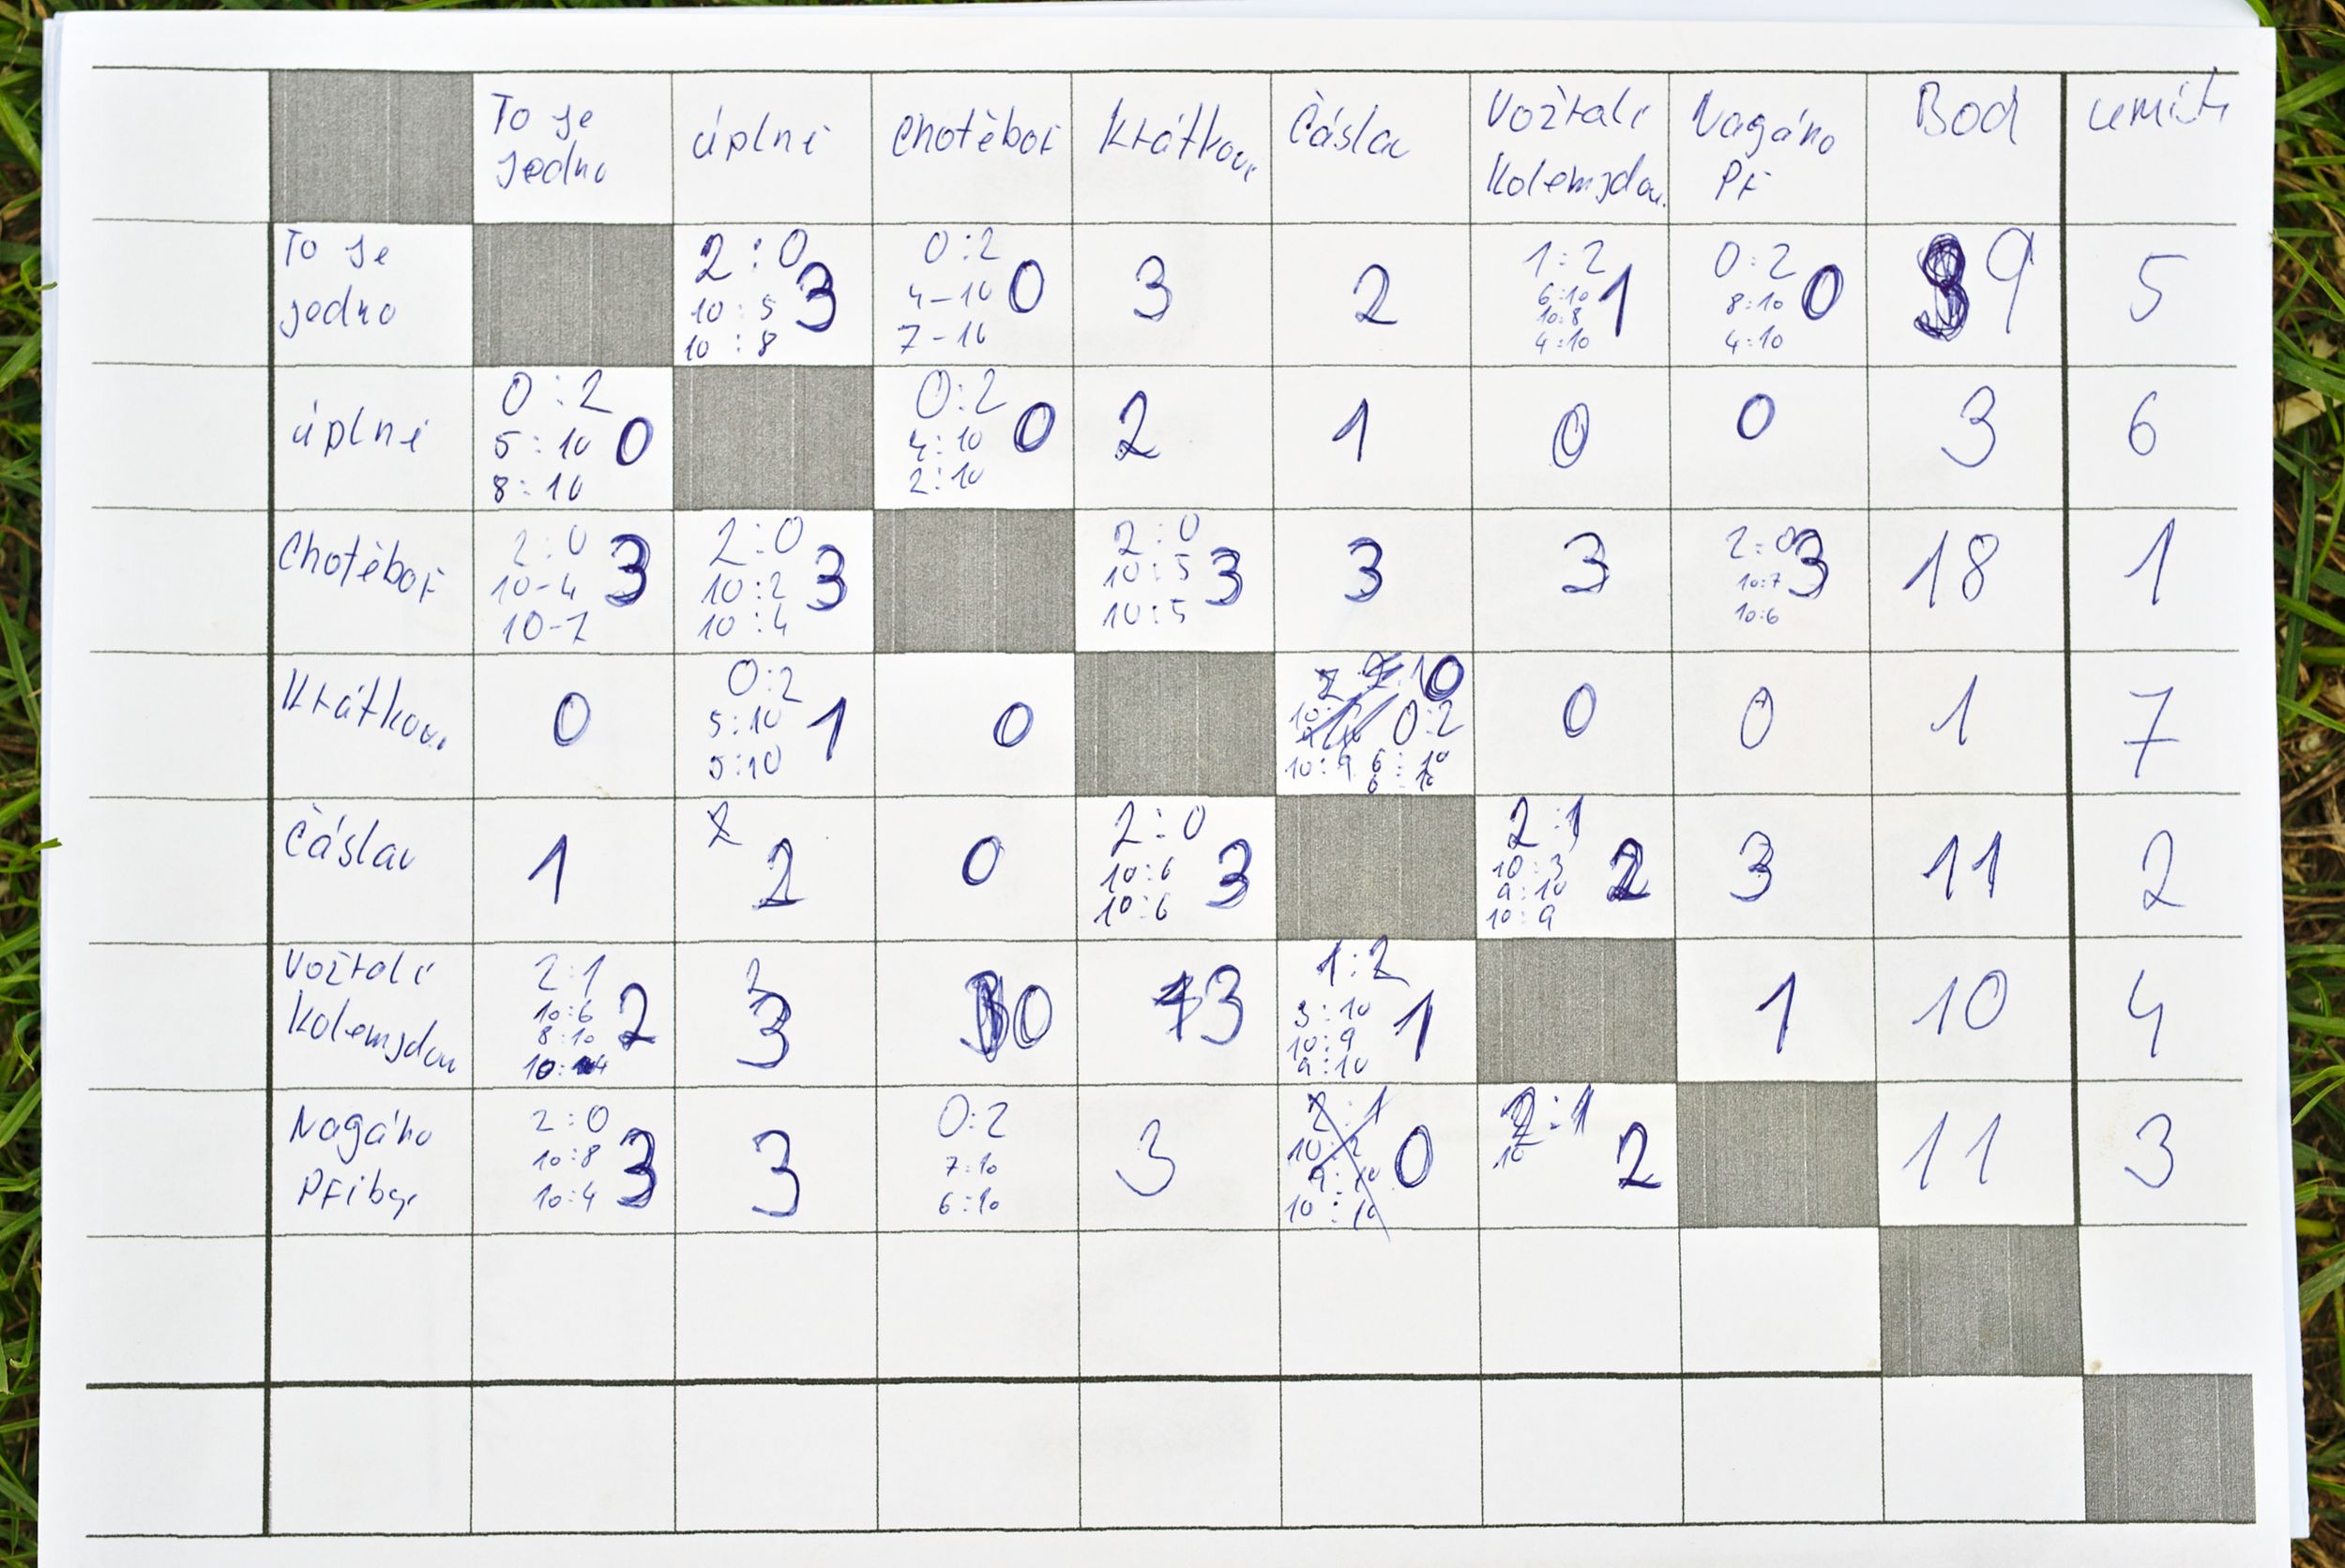 To je jedno úplně Chotěboř Krátkou. Čáslav Vožralí Kolemjdou. Nagáno Př Bod umíst
To je jedno 2:0 10:5 10:8 3 0:2 4-10 7-10 0 3 2 1:2 6:10 10:8 4:10 1 0:2 8:10 4:10 0 9 5
úplně 0:2 5:10 8:10 0 0:2 4:10 2:10 0 2 1 0 0 3 6
Chotěboř 2:0 10-4 10-7 3 2:0 10:2 10:4 3 2:0 10:5 10:5 3 3 3 2:0 10:7 10:6 3 18 1
Krátkou. 0 0:2 5:10 5:10 1 0 0 0:2 10:9 6:10 6:10 0 0 1 7
Čáslav 1 2 0 2:0 10:6 10:6 3 2:1 10:3 9:10 10:9 2 3 11 2
Vožralí Kolemjdou 2:1 10:6 8:10 10:4 2 3 0 3 1:2 3:10 10:9 9:10 1 1 10 4
Nagáno Příbr. 2:0 10:8 10:4 3 3 0:2 7:10 6:10 3 2:1 0 2:1 10 2 11 3